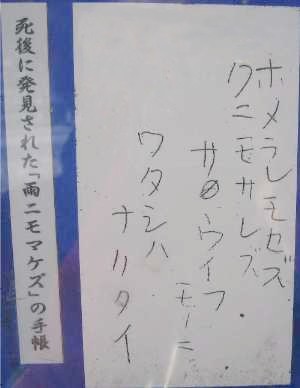 ホメラレモセズ
クニモサレズ
サウイフ
モノニ
ワタシハ
ナリタイ
死後に発見された「雨ニモマケズ」の手帳